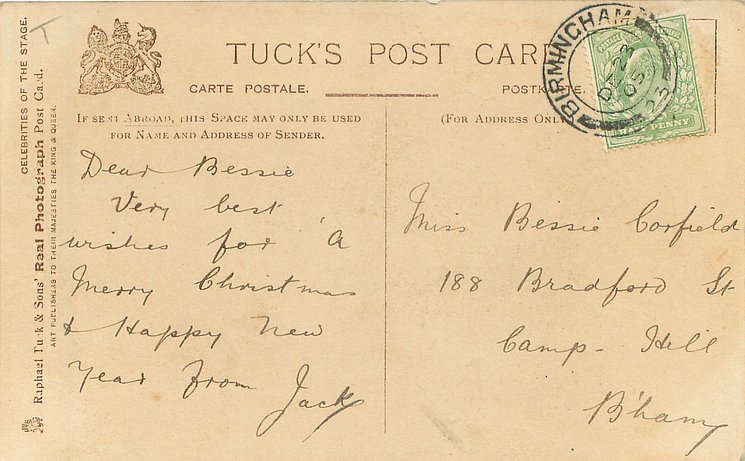 TUCK'S POST CARD
CARTE POSTALE.
POSTKARTE.
IF SENT ABROAD, THIS SPACE MAY ONLY BE USED
FOR NAME AND ADDRESS OF SENDER.
(For Address Only
BIRMINGHAM
DE 23
05
23
PENNY
CELEBRITIES OF THE STAGE.
Raphael Tuck & Sons' Real Photograph Post Card.
ART PUBLISHERS TO THEIR MAJESTIES THE KING & QUEEN.
T
Dear Bessie
Very best
wishes for A
Merry Christmas
& Happy New
Year from
Jack
Miss Bessie Corfield
188 Bradford St
Camp-Hill
B'ham